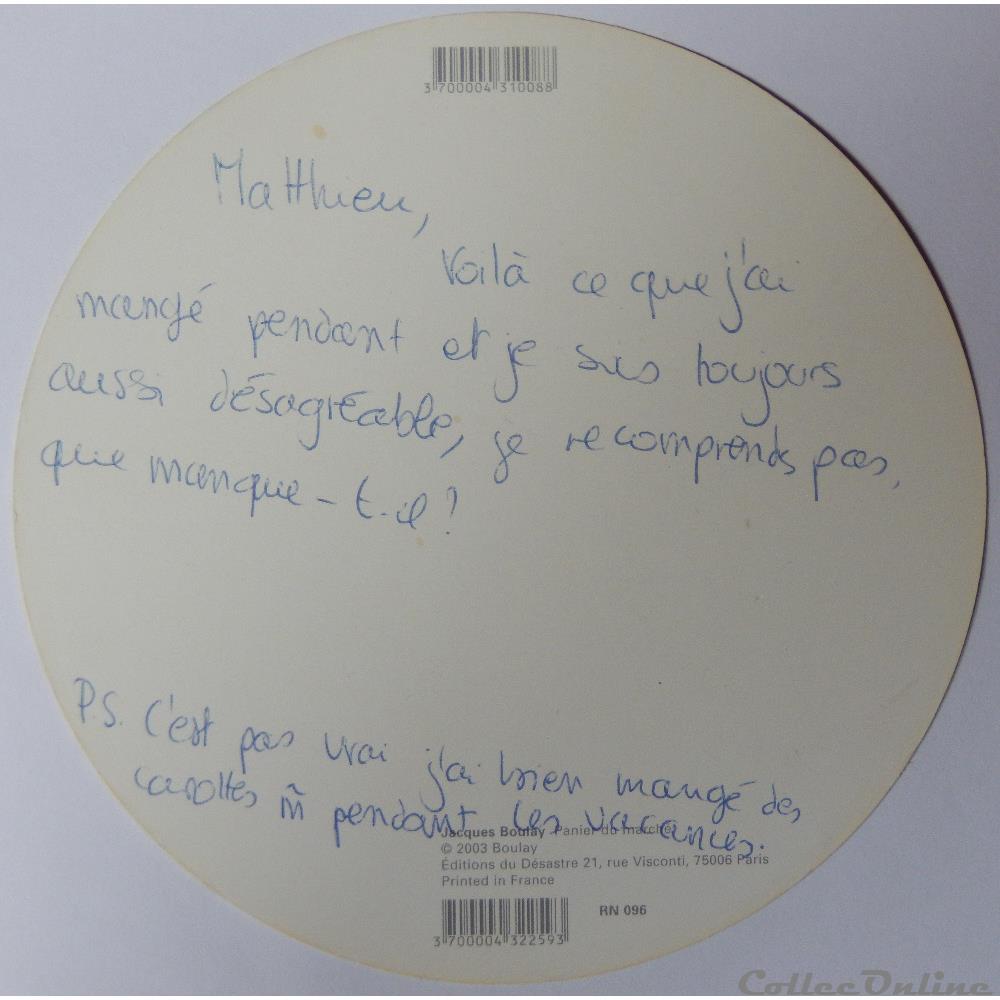 3 700004 310088
Matthieu,
Voilà ce que j'ai
mangé pendant et je suis toujours
aussi désagréable, je ne comprends pas,
que manque-t-il?
P.S. C'est pas vrai j'ai bien mangé des
carottes m̃ pendant les vacances.
Jacques Boulay Panier du marché
© 2003 Boulay
Éditions du Désastre 21, rue Visconti, 75006 Paris
Printed in France
RN 096
3 700004 322593
CollecOnline